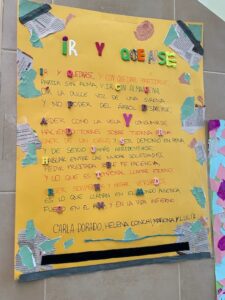 IR Y QUEDARSE
IR Y QUEDARSE, Y CON QUEDAR PARTIRSE,
PARTIR SIN ALMA, Y IR CON ALMA AJENA,
OÍR LA DULCE VOZ DE UNA SIRENA
Y NO PODER DEL ÁRBOL DESASIRSE;
ARDER COMO LA VELA Y CONSUMIRSE
HACIENDO TORRES SOBRE TIERNA ARENA;
CAER DE UN CIELO, Y SER DEMONIO EN PENA,
Y DE SERLO JAMÁS ARREPENTIRSE;
HABLAR ENTRE LAS MUDAS SOLEDADES,
PEDIR PRESTADA SOBRE FE PACIENCIA,
Y LO QUE ES TEMPORAL LLAMAR ETERNO;
CREER SOSPECHAS Y NEGAR VERDADES,
ES LO QUE LLAMAN EN EL MUNDO AUSENCIA,
FUEGO EN EL ALMA, Y EN LA VIDA INFIERNO.
CARLA DORADO, HELENA CONCHI, MARINA Y LUCÍA